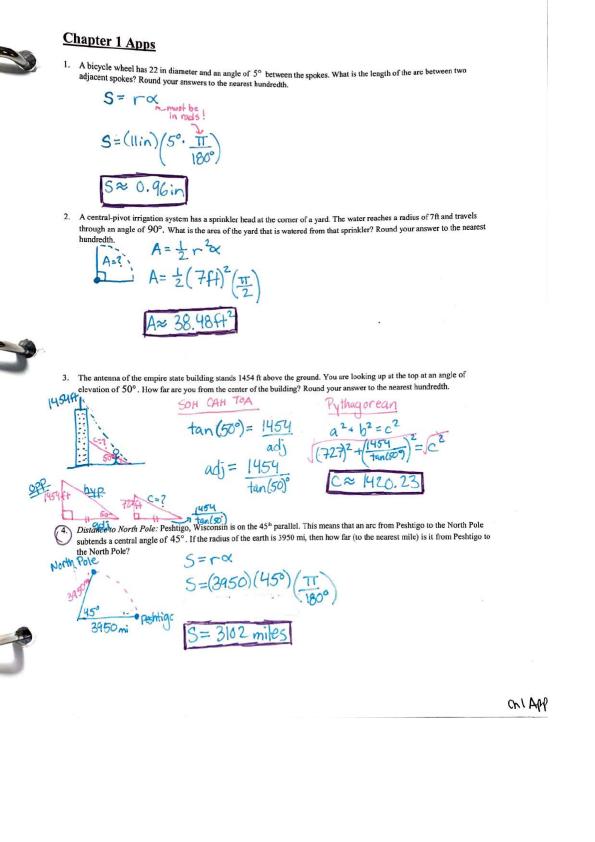 Chapter 1 Apps
1. A bicycle wheel has 22 in diameter and an angle of 5° between the spokes. What is the length of the arc between two
adjacent spokes? Round your answers to the nearest hundredth.
S = rα
must be
in rads!
S=(11in)(5°· π/180°)
S≈ 0.96in
2. A central-pivot irrigation system has a sprinkler head at the corner of a yard. The water reaches a radius of 7ft and travels
through an angle of 90°. What is the area of the yard that is watered from that sprinkler? Round your answer to the nearest
hundredth.
A=?
A = 1/2 r²α
A= 1/2 (7ft)² (π/2)
A≈ 38.48ft²
3. The antenna of the empire state building stands 1454 ft above the ground. You are looking up at the top at an angle of
elevation of 50°. How far are you from the center of the building? Round your answer to the nearest hundredth.
1454ft
c=?
50°
SOH CAH TOA
tan(50°)= 1454/adj
adj = 1454/tan(50)°
Pythagorean
a² + b² = c²
√(727)² + (1454/tan(50°))² = √c²
C≈ 1420.23
opp
1454ft
hyp
50°
adj
727ft
C=?
1454/tan(50°)
4. Distance to North Pole: Peshtigo, Wisconsin is on the 45th parallel. This means that an arc from Peshtigo to the North Pole
subtends a central angle of 45°. If the radius of the earth is 3950 mi, then how far (to the nearest mile) is it from Peshtigo to
the North Pole?
North Pole
3950
45°
3950mi
Peshtigo
S=rα
S=(3950)(45°)(π/180°)
S= 3102 miles
Ch 1 App